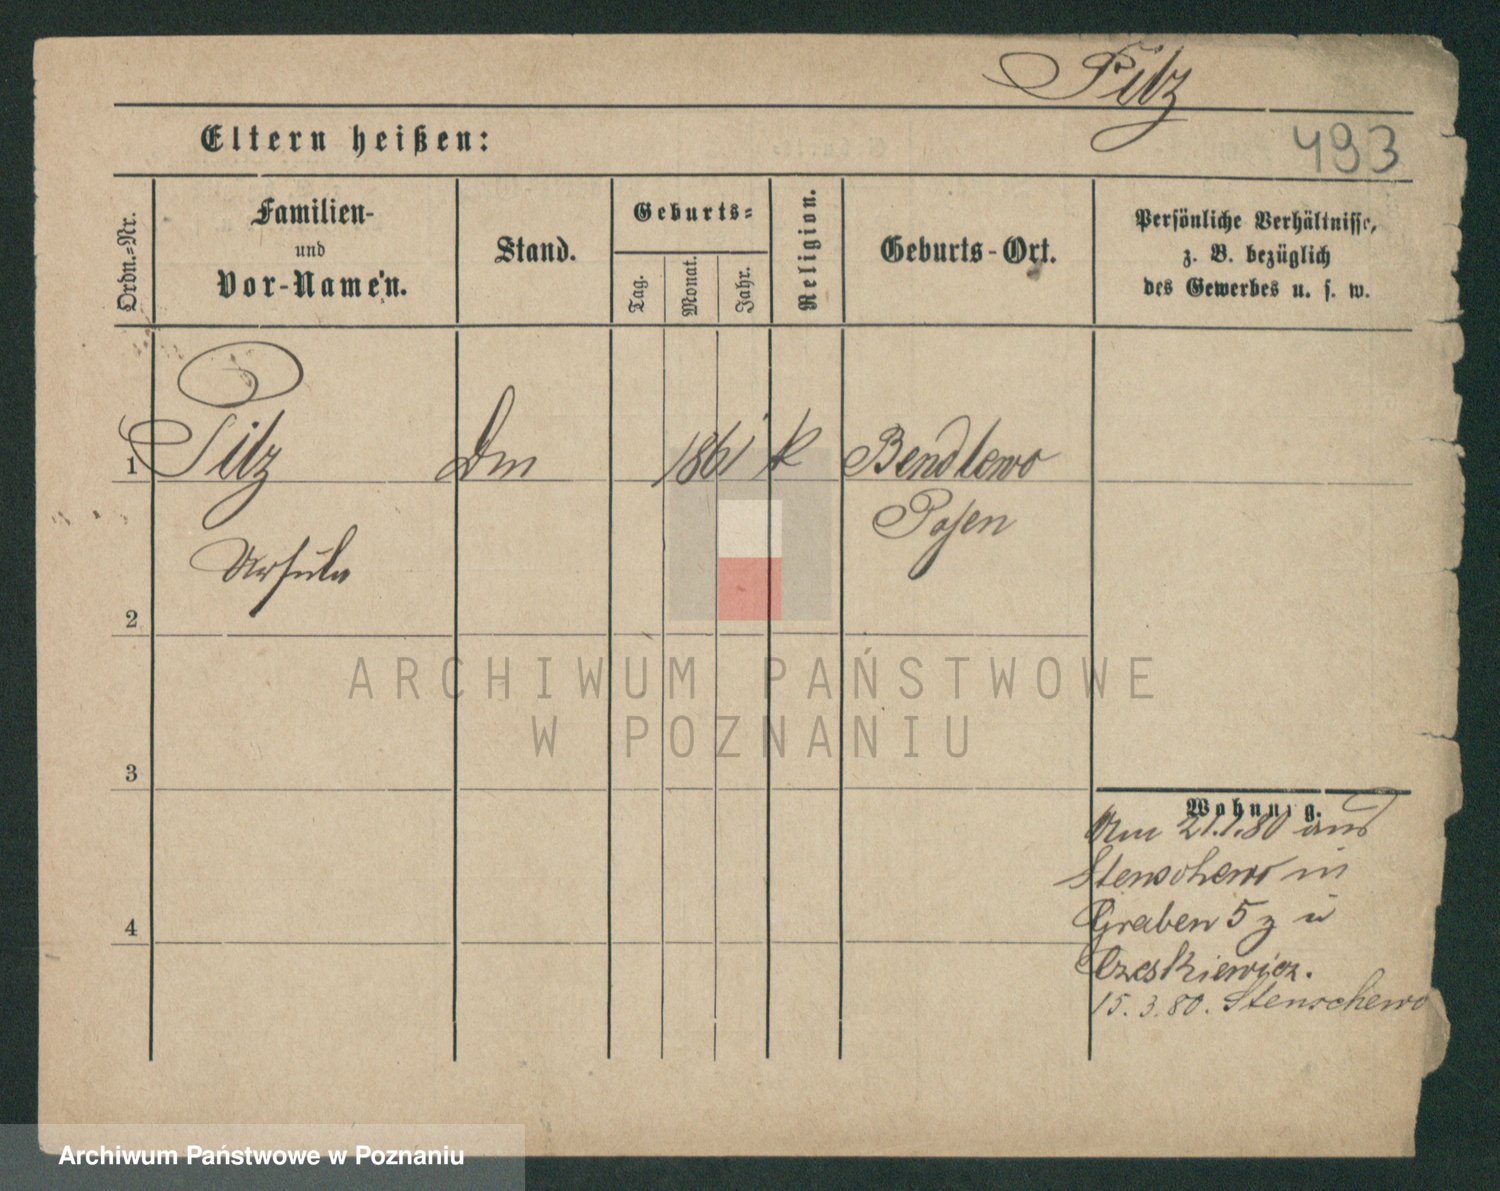 Pilz
Eltern heißen:
493
Ordn.-Nr.
Familien-
und
Vor-Namen.
Stand.
Geburts-
Tag.
Monat.
Jahr.
Religion.
Geburts-Ort.
Persönliche Verhältnisse,
z. B. bezüglich
des Gewerbes u. s. w.
1 Pilz Dm 1861 k Bendlewo
Posen
Ursula
2
3
4
Wohnung.
Am 21.1.80 aus
Stenschewo in
Graben 5 z u
Czeskiewicz.
15.3.80. Stenschewo
ARCHIWUM PAŃSTWOWE
W POZNANIU
Archiwum Państwowe w Poznaniu